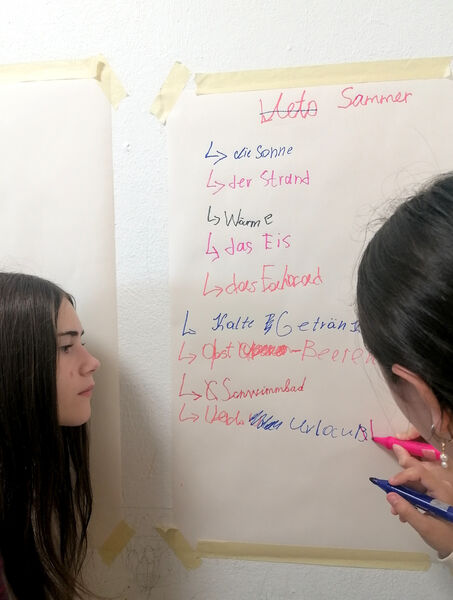 Leto Sammer
die Sonne
der Strand
Wärme
das Eis
das
Kalte Getränk
Obst -Beeren
Schwimmbad
Urlaub